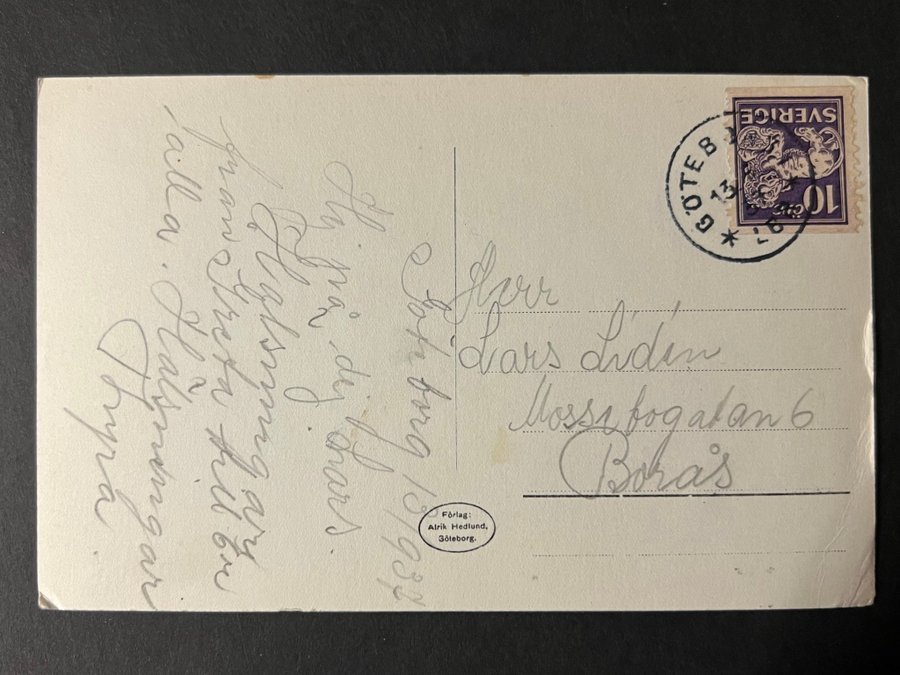 Göteborg 13/8 1932
Hej på dig Lars.
Hälsningar
från Greta till Er
alla. Hälsningar
Thyra
Herr
Lars Lidén
Mossebogatan 6
Borås
Förlag:
Alrik Hedlund,
Göteborg.
SVERIGE
10 ÖRE
GÖTEB
13
LBP